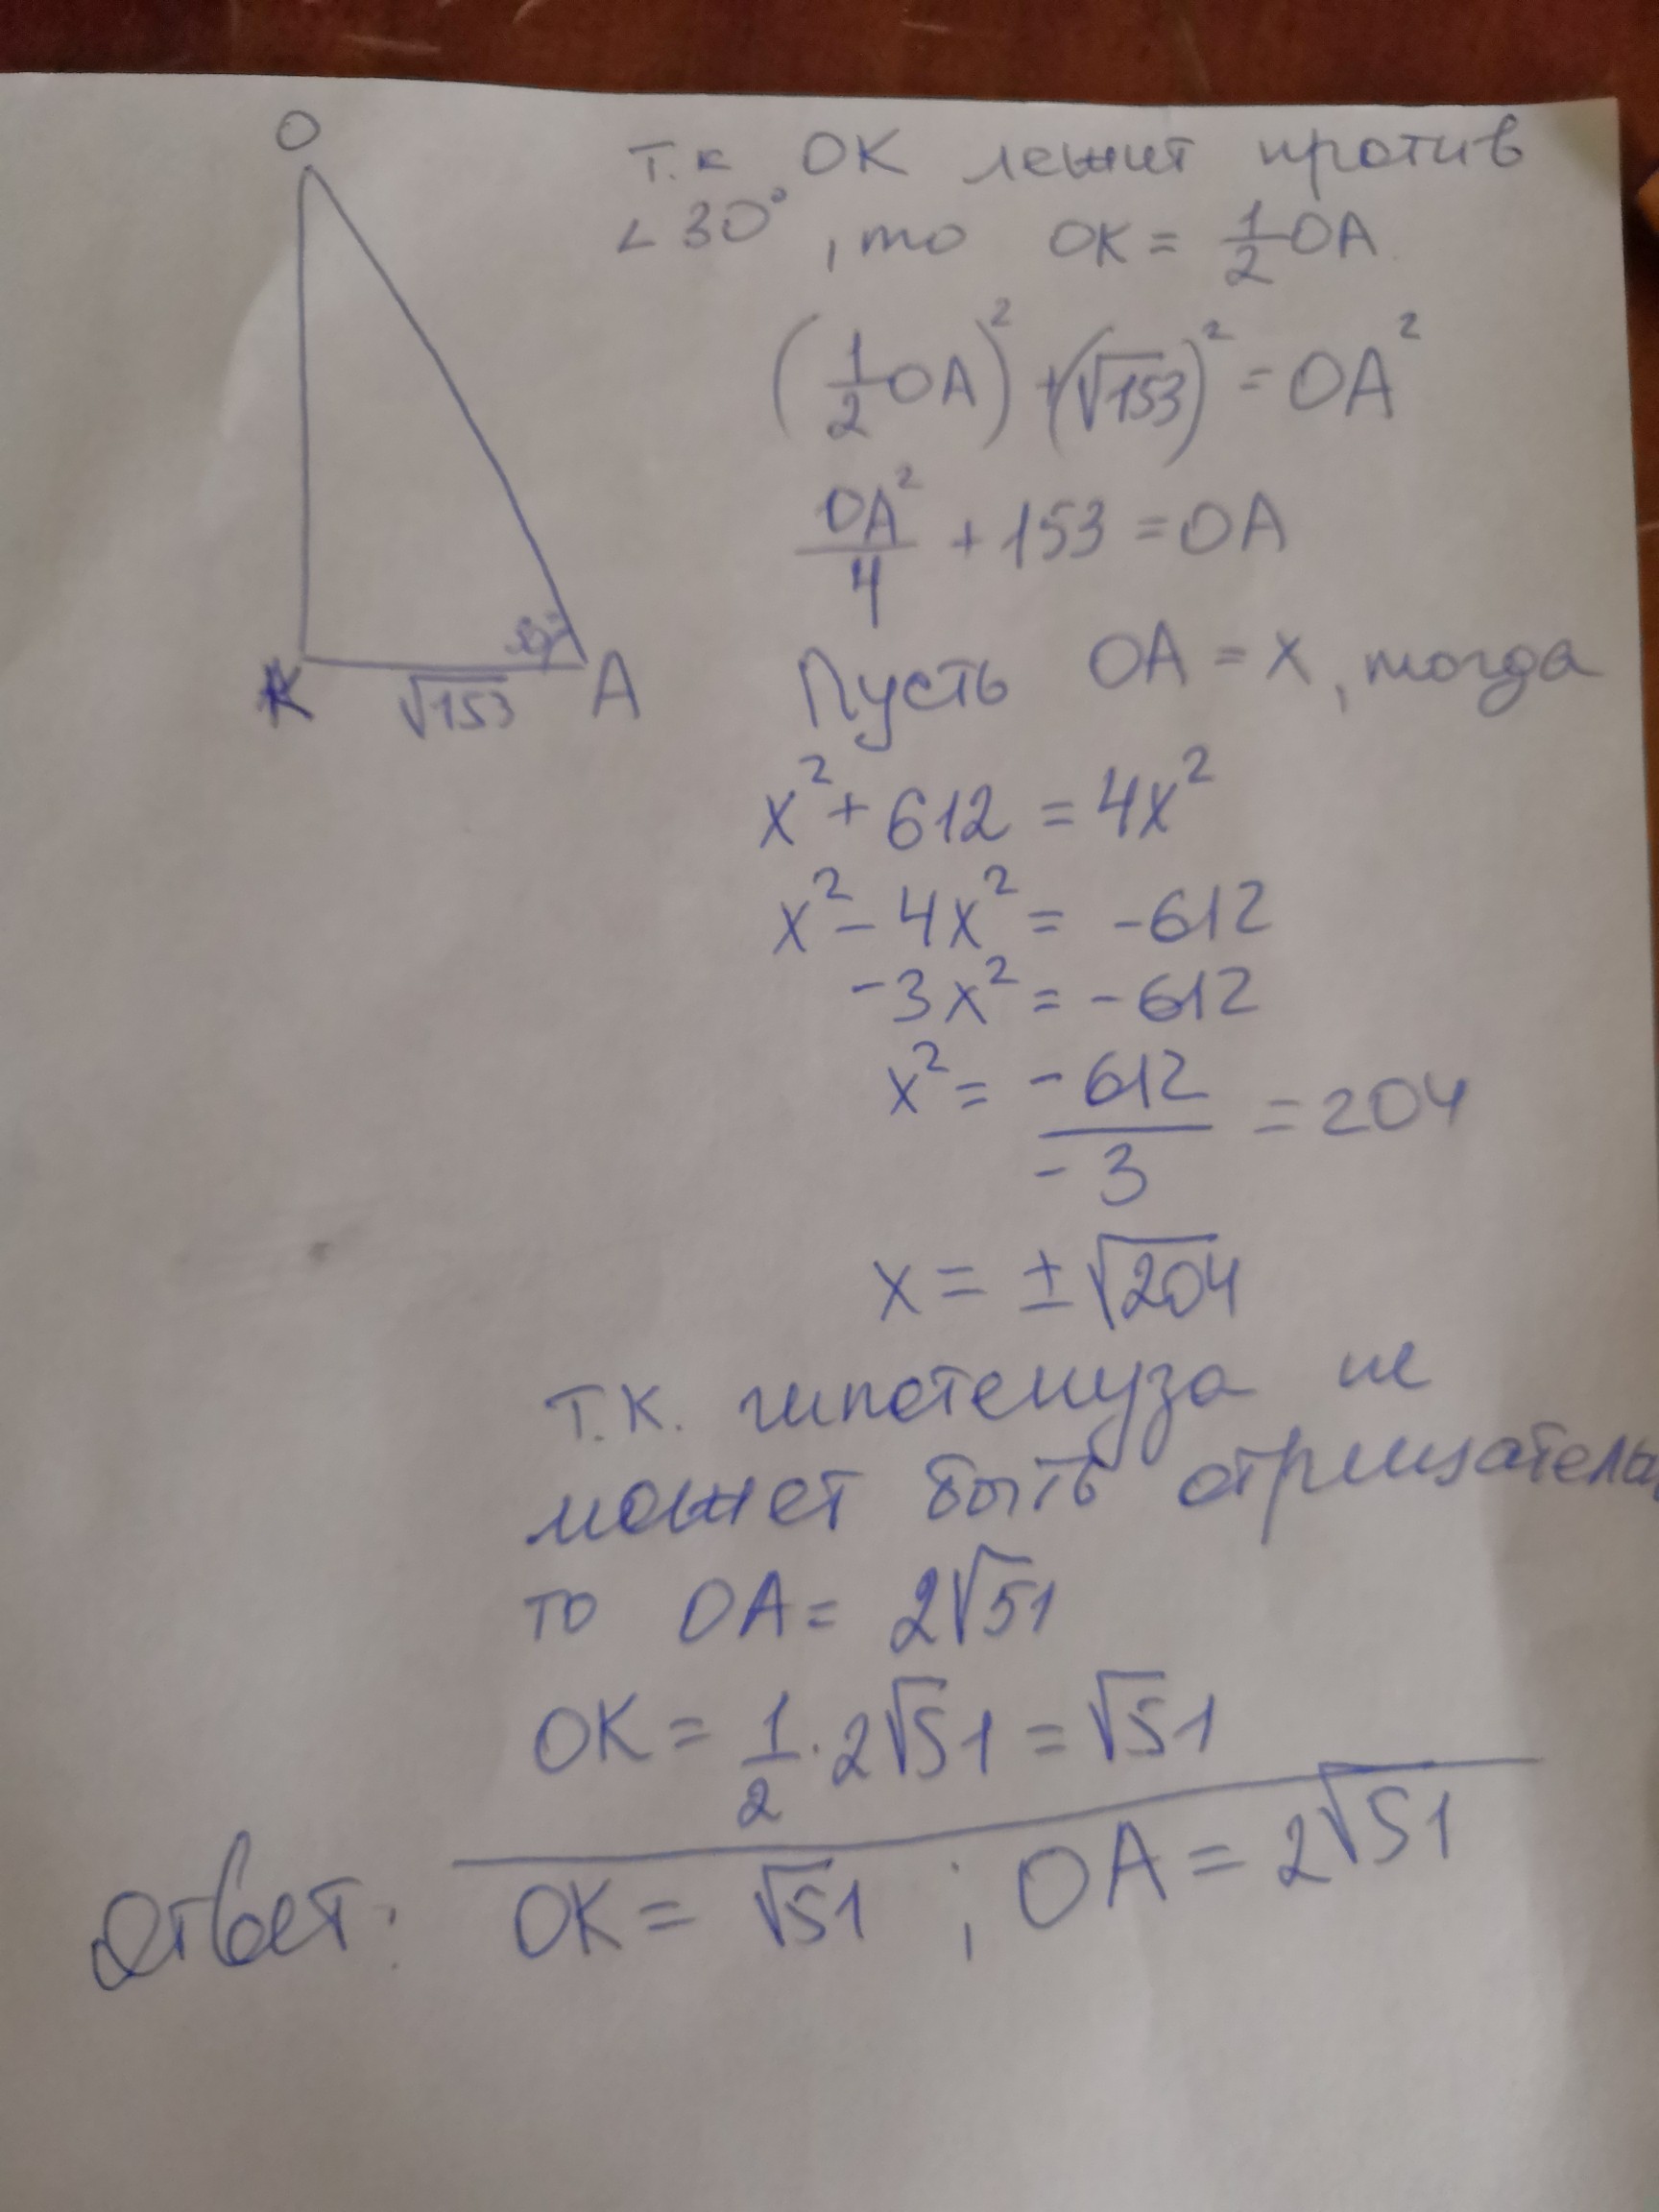 O
Т.к OK лежит против
∠30°, то OK = 1/2 OA
(1/2 OA)² + (√153)² = OA²
OA²/4 + 153 = OA
30°
K √153 A
Пусть OA = x, тогда
x² + 612 = 4x²
x² - 4x² = -612
-3x² = -612
x² = -612/-3 = 204
x = ±√204
Т.К. гипотенуза не
может быть отрицатель
то OA = 2√51
OK = 1/2 · 2√51 = √51
Ответ: OK = √51 ; OA = 2√51